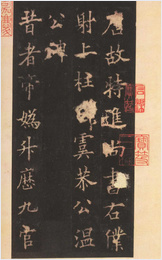 唐故特進尚書右僕
射上柱國虞恭公溫
公碑
昔者帝媯升歷九官